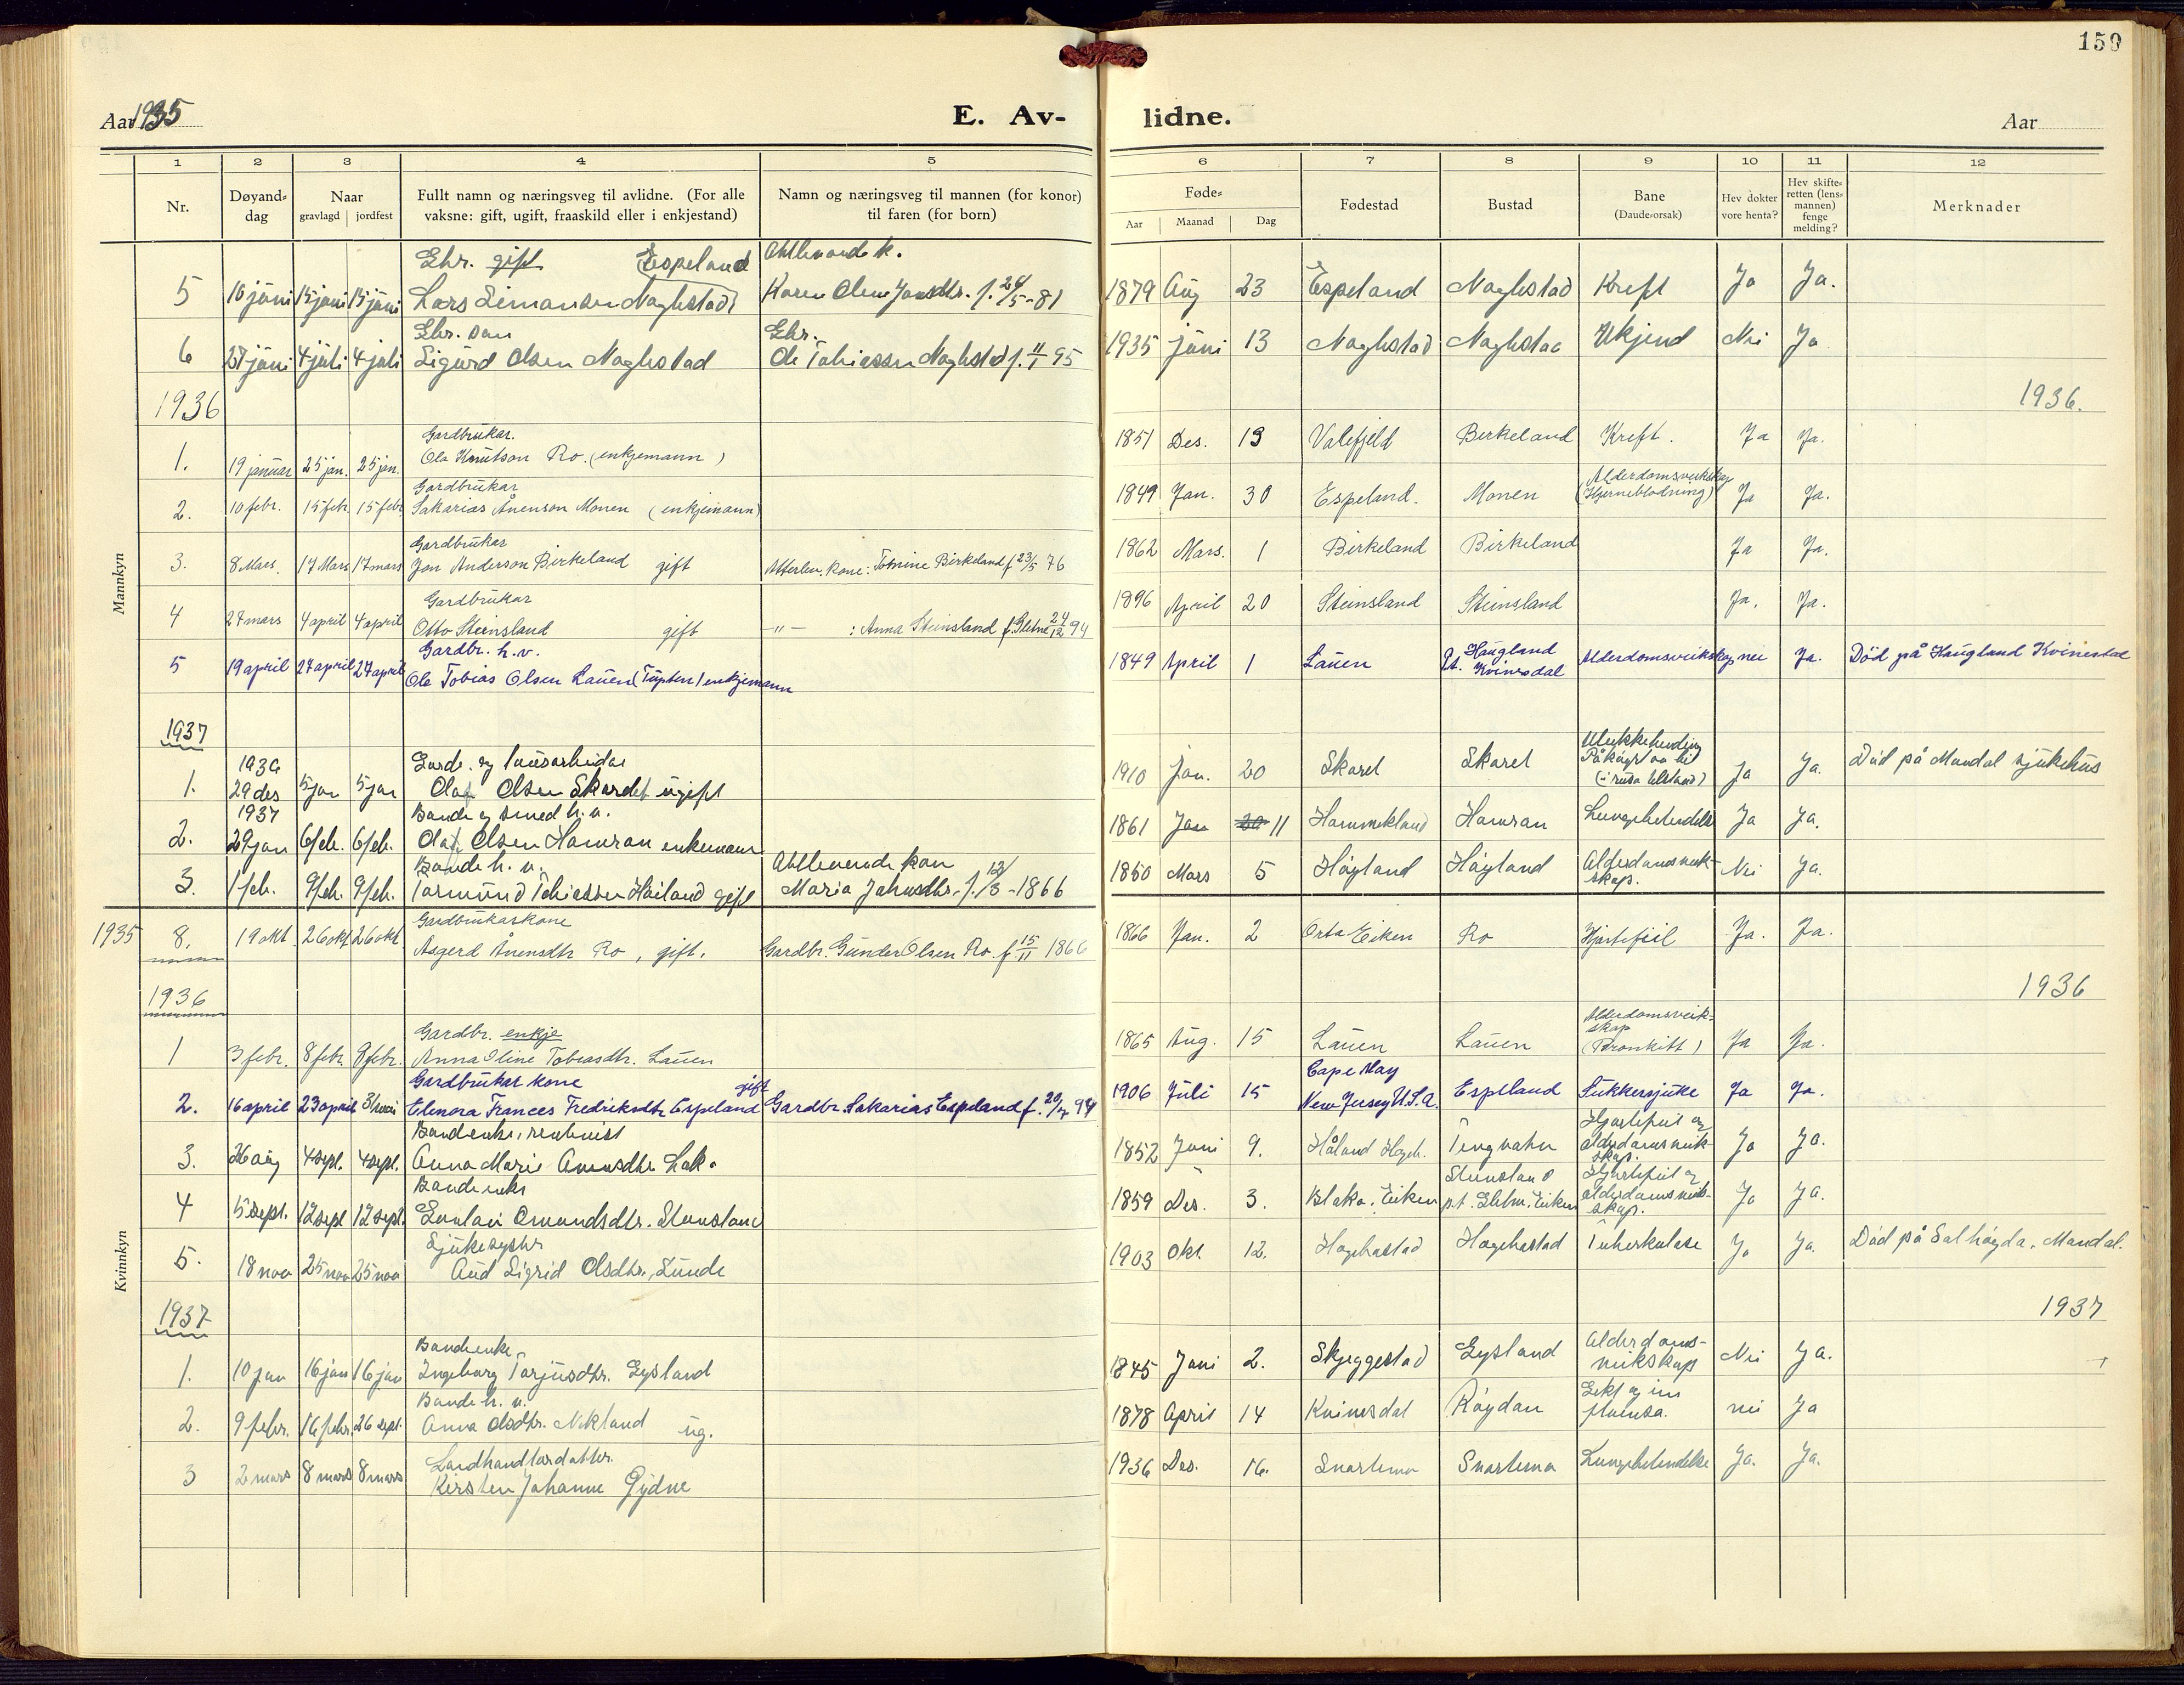 159
Aar 1935
E. Av-
lidne.
Aar
1 2 3 4 5 6 7 8 9 10 11 12
Nr.
Døyand-
dag
Naar
gravlagd | jordfest
Fullt namn og næringsveg til avlidne. (For alle
vaksne: gift, ugift, fraaskild eller i enkjestand)
Namn og næringsveg til mannen (for konor)
til faren (for born)
Føde-
Aar Maanad Dag
Fødestad
Bustad
Bane
(Daudeorsak)
Hev dokter
vore henta?
Hev skifte-
retten (lens-
mannen)
fenge
melding?
Merknader
Mannkyn
Gbr. gift Espeland Attlevande k.
5 10 juni 15 juni 15 juni Lars Simonsen Naglestad Karen Oline Jansdtr. f. 24/5-81 1879 Aug 23 Espeland Naglestad Kreft Ja Ja.
Gbr. son Gbr.
6 27 juni 4 juli 4 juli Sigurd Olsen Naglestad Ole Tobiassen Naglestad f. 11/1 95 1935 juni 13 Naglestad Naglestad Ukjend Nei Ja
1936 1936.
Gardbrukar.
1. 19 januar 25 jan. 25 jan. Ola Knutson Ro. (enkjemann) 1851 Des. 19 Valefjeld Birkeland Kreft. Ja Ja.
Gardbrukar Alderdomsveikskap
2. 10 febr. 15 febr. 15 febr. Sakarias Ånenson Monen (enkjemann) 1849 Jan. 30 Espeland. Monen (Hjerneblødning) Ja Ja.
Gardbrukar
3. 8 Mars. 17 Mars 17 mars Jon Anderson Birkeland gift Atterlev. kone: Tomine Birkeland f 23/5 76 1862 Mars. 1 Birkeland Birkeland Ja Ja.
Gardbrukar
4 27 mars 4 april 4 april Otto Steinsland gift —"— : Anna Steinsland f. Gletne 24/12 94 1896 April 20 Steinsland Steinsland Ja. Ja.
Gardbr. h.v. Haugland
5 19 april 27 april 27 april Ole Tobias Olsen Lauen (Tuften) enkjemann 1849 April 1 Lauen Kvinesdal Alderdomsveikskap nei Ja. Död på Haugland Kvinesdal
1937
1936 Gards. og lausarbeidar
1. 29 des 5 jan 5 jan Olaf Olsen Skardet ugift 1910 Jan. 20 Skaret Skaret Ulukkehending Påkøyrt av bil Ja Ja. Död på Mandal sjukehus
1937 Bonde og smed h. v.
2. 29 jan 6 feb. 6 feb. Olaf Olsen Hamran enkemann 1861 Jan 30 11 Hammekland Hamran Lungebetendelse Ja Ja.
Bonde h. v. Attlevende kone
3. 1 feb. 9 feb. 9 feb. Tarmund Tobiassen Høiland gift Maria Jakobsdtr. f. 12/3-1866 1850 Mars 5 Høyland Høyland Alderdomsveik-
skap. Nei Ja.
Kvinnkyn
Gardbrukarkone
1935 8. 19 okt. 26 okt 26 okt Asgerd Ånensdtr Ro, gift. Gardbr. Gunder Olsen Ro. f 15/11 1866 1866 Jan. 2 Orta Eiken Ro Hjartefeil Ja. Ja.
1936 1936
Gardbr. enkje Alderdomsveik-
skap
1 3 febr. 8 febr. 8 febr. Anna Oline Tobiasdtr. Lauen 1865 Aug. 15 Lauen Lauen (Bronkitt) Ja Ja.
Gardbrukar kone gift Cape May
2. 16 april 23 april 3 mai Elenora Frances Fredriksdtr Espeland Gardbr. Sakarias Espeland f. 20/7 94 1906 Juli 15 New Jersey U.S.A. Espeland Sukkersjuke Ja Ja.
Bondenke, Hjartefeil og
3. 26 aug 4 sept. 4 sept. Anna Marie Ånensdtr. 1852 Juni 9. Håland Hægeb. Tingvatn alderdomsveik-
skap. Ja Ja.
Bondenke Steinsland Hjartefeil og
4 5 sept. 12 sept 12 sept. Omundsdtr. Steinsland 1859 Des. 3. Blaka, Eiken p.t. Gletne, Eiken alderdomsveik-
skap. Ja Ja.
Sjukesyster
5. 18 nov 25 nov 25 nov Aud Sigrid Olsdtr., Lunde 1903 Okt. 12. Hægebostad Hægebostad Tuberkulose Ja Ja. Död på Solhøgda, Mandal.
1937 1937
Bondenke
1. 10 jan 16 jan 16 jan Ingeborg Tarjusdtr. Eysland 1845 Juni 2. Skjeggestad Eysland Alderdoms-
veikskap Nei Ja.
Bonde h. v.
2. 9 febr. 16 febr. 26 sept. Anna Olsdtr. Nekland ug. 1878 April 14 Kvinesdal Røydan nei Ja
Landhandlardatter.
3 2 mars 8 mars 8 mars Kirsten Johanne Gydne 1936 Des. 16. Snartemo Snartemo Lungebetendelse Ja. Ja.